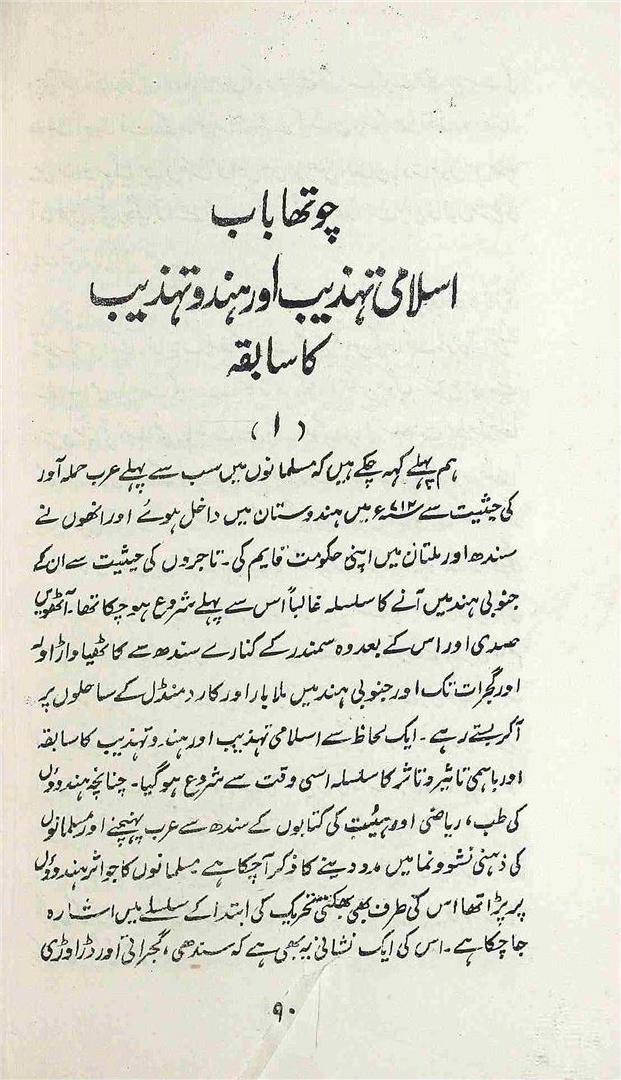 چوتھا باب
اسلامی تہذیب اور ہندو تہذیب
کا سابقہ
(۱)
ہم پہلے کہہ چکے ہیں کہ مسلمانوں میں سب سے پہلے عرب حملہ آور
کی حیثیت سے ۷۱۲ء میں ہندوستان میں داخل ہوئے اور انھوں نے
سندھ اور ملتان میں اپنی حکومت قایم کی۔ تاجروں کی حیثیت سے ان کے
جنوبی ہند میں آنے کا سلسلہ غالباً اس سے پہلے شروع ہو چکا تھا۔ آٹھویں
صدی اور اس کے بعد وہ سمندر کے کنارے سندھ سے کاٹھیاواڑ اولہ
اور گجرات تک اور جنوبی ہند میں ملابار اور کارومنڈل کے ساحلوں پر
آ کر بستے رہے۔ ایک لحاظ سے اسلامی تہذیب اور ہندو تہذیب کا سابقہ
اور باہمی تاثیر و تاثر کا سلسلہ اسی وقت سے شروع ہو گیا۔ چنانچہ ہندوؤں
کی طب، ریاضی اور ہیئت کی کتابوں کے سندھ سے عرب پہنچنے اور مسلمانوں
کی ذہنی نشوونما میں مدد دینے کا ذکر آ چکا ہے۔ مسلمانوں کا جو اثر ہندوؤں
پر پڑا تھا اس کی طرف بھی بھکتی تحریک کی ابتدا کے سلسلے میں اشارہ
جا چکا ہے۔ اس کی ایک نشانی یہ بھی ہے کہ سندھی، گجراتی اور دڑاوڑی
۹۰